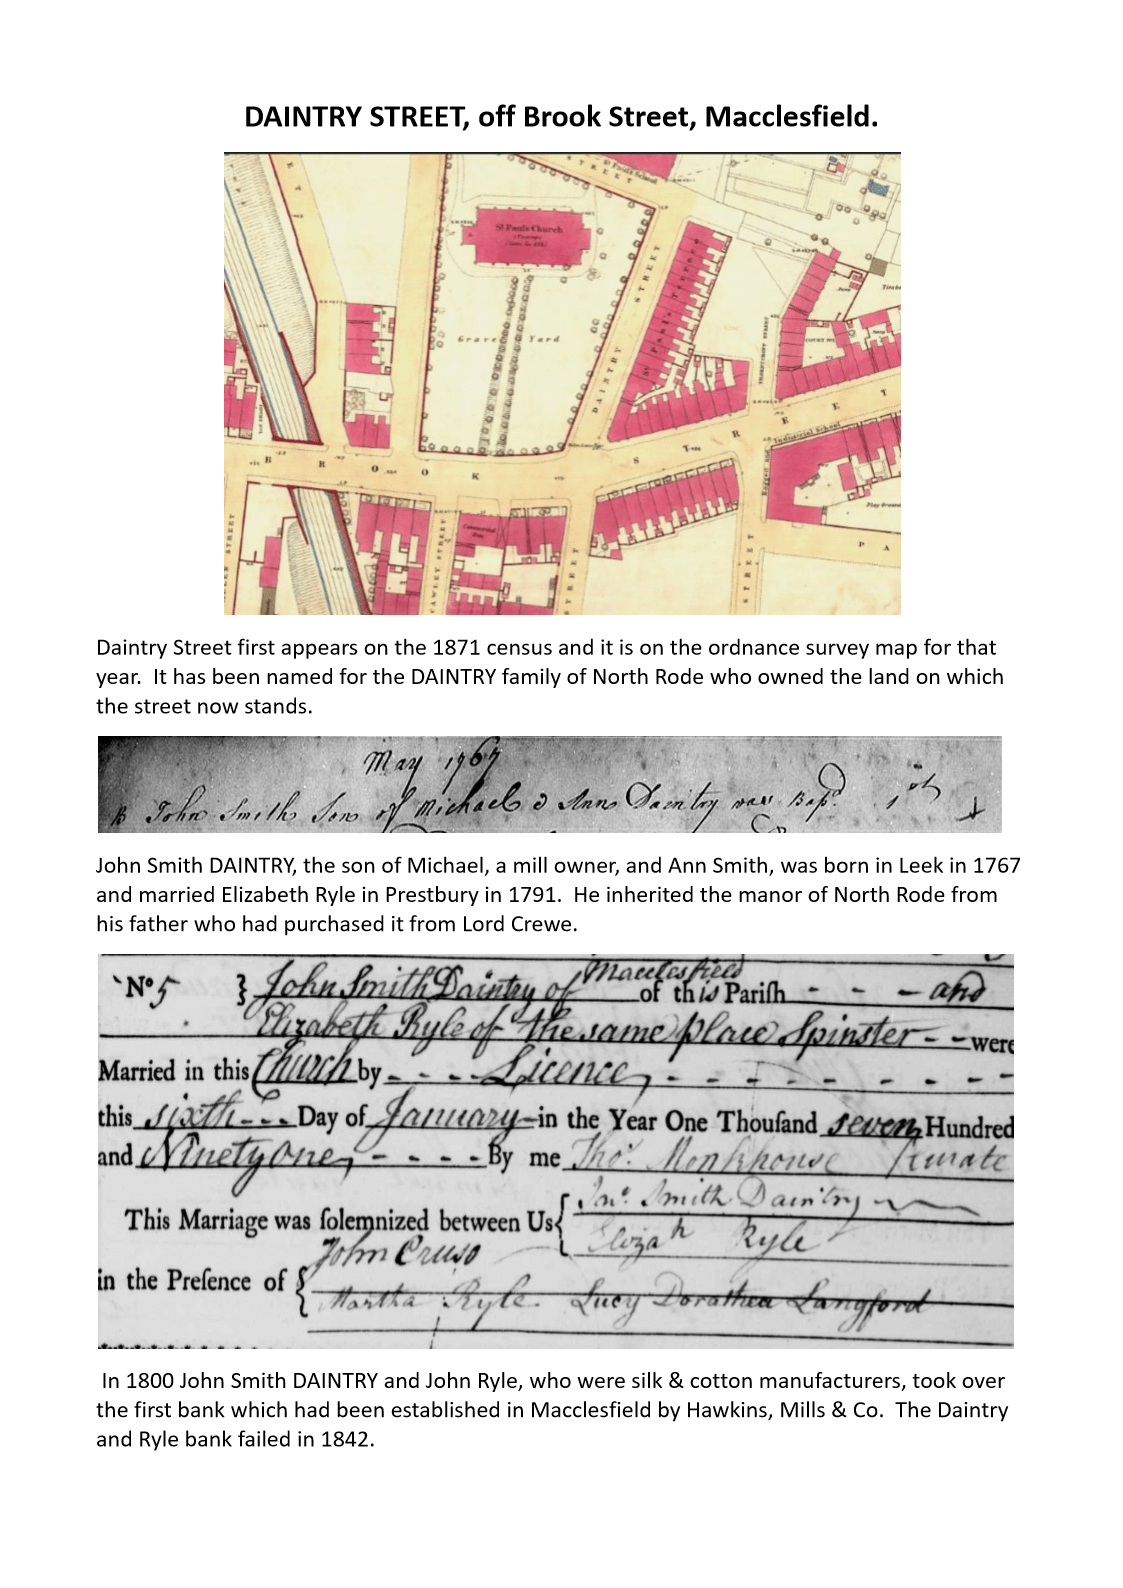 DAINTRY STREET, off Brook Street, Macclesfield.
STREET
St Paul's School
St Paul's Church
Grave Yard
DAINTRY STREET
St Paul's Terrace
THORNYCROFT STREET
Industrial School
Play Ground
BROOK STREET
Commercial
STREET
STREET
PA
Daintry Street first appears on the 1871 census and it is on the ordnance survey map for that
year. It has been named for the DAINTRY family of North Rode who owned the land on which
the street now stands.
May 1767
B John Smith Son of Michael & Ann Daintry was Bapd. 1st
John Smith DAINTRY, the son of Michael, a mill owner, and Ann Smith, was born in Leek in 1767
and married Elizabeth Ryle in Prestbury in 1791. He inherited the manor of North Rode from
his father who had purchased it from Lord Crewe.
Macclesfield
No 5 } John Smith Daintry of of this Parish - - - and
Elizabeth Ryle of the same place Spinster - - were
Married in this Church by - - - - Licence, - - - - - - - -
this sixth - - - Day of January in the Year One Thousand seven Hundred
and Ninety one, - - - - By me Thos. Monkhouse Curate
Jno. Smith Daintry
This Marriage was solemnized between Us {
Elizah Ryle
John Cruso
in the Presence of {
Martha Ryle. Lucy Dorothea Langford
In 1800 John Smith DAINTRY and John Ryle, who were silk & cotton manufacturers, took over
the first bank which had been established in Macclesfield by Hawkins, Mills & Co. The Daintry
and Ryle bank failed in 1842.